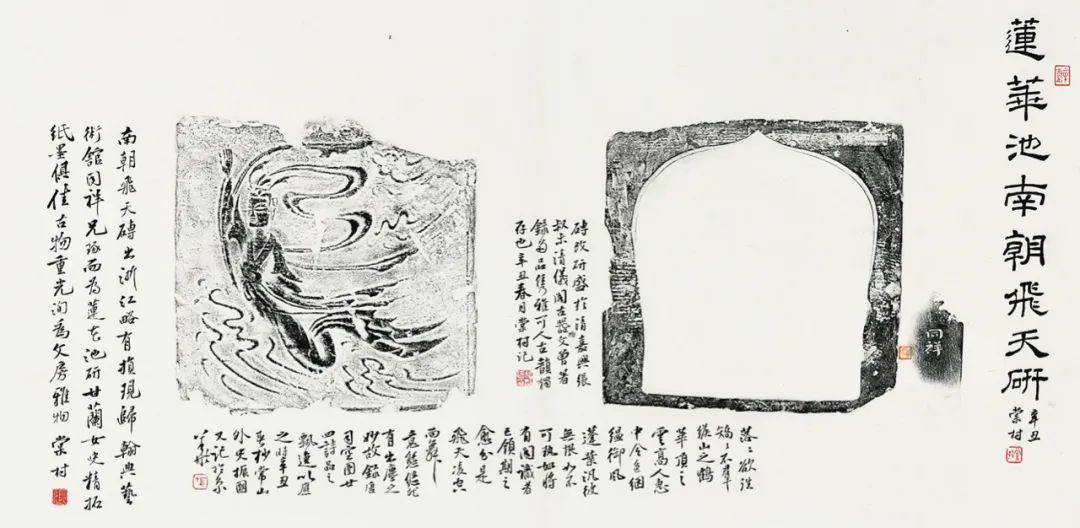 蓮華池南朝飛天研
辛丑
棠村
同祥
磚改研盛於清嘉興張
叔未清儀閣古器文曾著
錄多品隽雅可人古韻獨
存也辛丑春月棠村记
落〻欲往
矯〻不羣
緱山之鶴
華頂之
雲高人惠
中令色絪
縕御風
蓬葉汎彼
無垠如不
可執如將
有闻識者
已領期之
愈分是
飛天凌空
而舞
意態悠然
有出塵之
妙故錄唐
司空图廿
四詩品之
飄逸以應
之時辛丑
杪常山
外史振國
又记於京
南朝飛天磚出浙江略有損現歸翰典藝
術館同祥兄琢而為蓮花池研廿蘭女史精拓
紙墨俱佳古物重光洵為文房雅物棠村